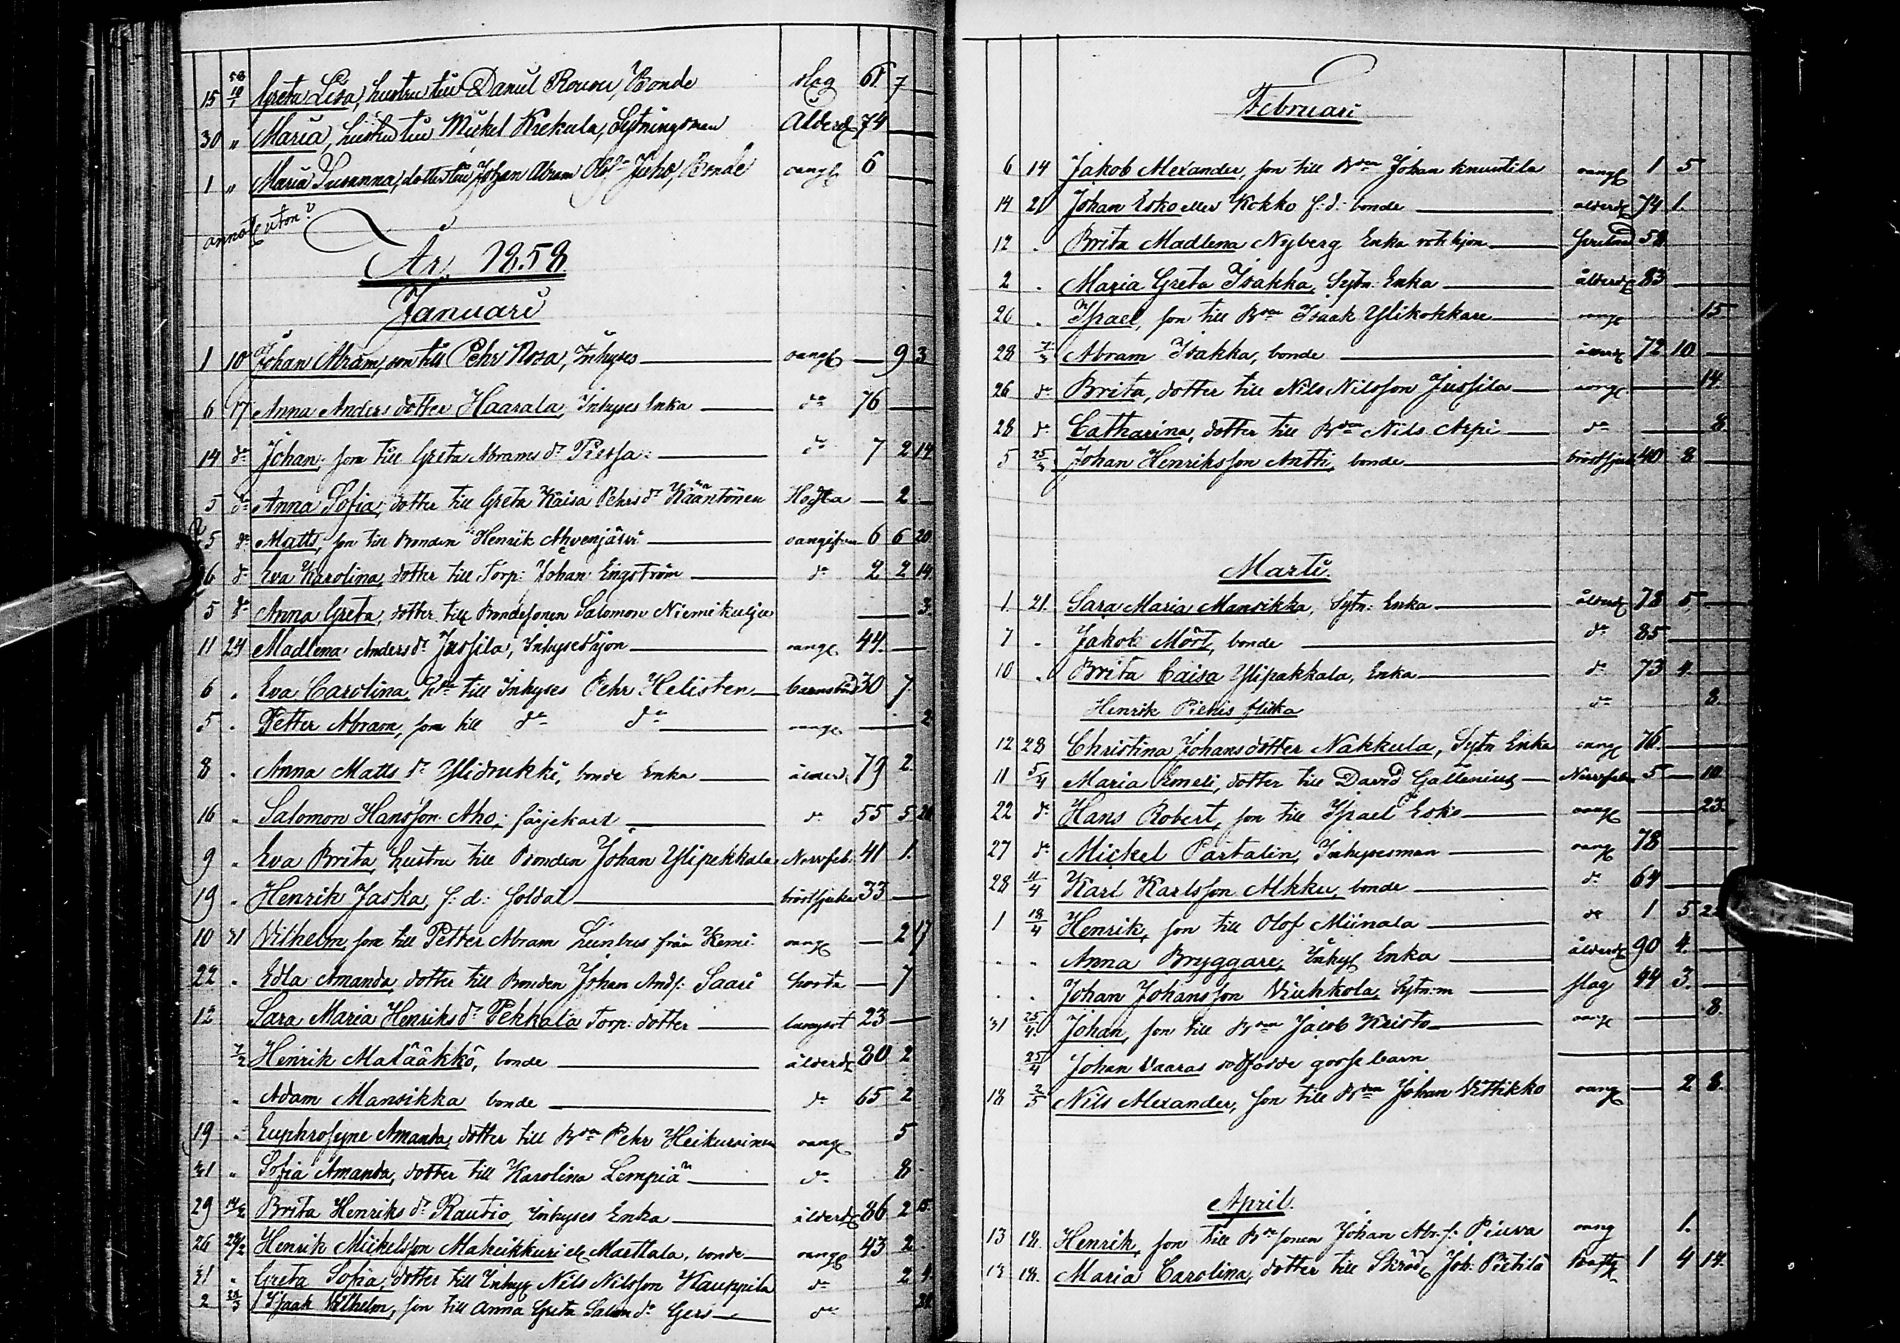 15 58 10/1 Greta Lisa, hustru till Daniel Rousu, Bonde slag 61 7
30 " Maria, hustru till Mickel Krekula, Sytningsman Ålderd. 74
1 " Maria Susanna, dotter till Johan Abram Juho, Bonde oang. 6
År 1858
Januari
1 10 Johan Abram, son till Pehr Rosa, Inhyses oang. 9 3
6 17 Anna Anders dotter Haarala, Inhyses Enka do 76
14 do Johan, son till Greta Abrams dr do 7 2 14
5 do Anna Sofia, dotter till Greta Kaisa Pehrs dr Kääntönen Hosta 2
5 do Matts, son till Bonden Henrik Ahvenjärvi oangifven 6 6 20
6 do Eva Karolina, dotter till Torp: Johan Engström do 2 2 14
5 do Anna Greta, dotter till Bondesonen Salomon Niemikulja 3
11 24 Madlena Anders dr Jussila, Inhyseshjon oang. 44
6 . Eva Carolina, till Inhyses Pehr Helisten barnsbörd 30 7
5 . Petter Abram, son till do do oang. 2
8 . Anna Matts dr Ylidrukki, bonde Enka ålderd. 79 2
16 . Salomon Hansson Aho, färjekarl do 55 5 20
9 . Eva Brita, hustru till Bonden Johan Ylipekkala Nervfeb. 41 1
19 . Henrik Jaska, f: d: Soldat bröstsjuka 33
10 31 Wilhelm, son till Petter Abram från Kemi oang. 2 17
22 . Edla Amanda dotter till Bonden Johan Ands: Saari hosta 7
12 Sara Maria Henriks dr Pekkala Torp: dotter lungsot 23
7/2 Henrik Matäakkö, bonde ålderd. 80 2
. Adam Mansikka bonde do 65 2
19 . Euphrosyne Amanda, dotter till Bden Pehr Heikurainen oang. 5
31 " Sofia Amanda, dotter till Karolina Lempiä do 8
29 14/2 Brita Henriks dr Rautio, Inhyses Enka ålderd. 86 2 15
26 28/2 Henrik Mickelsson Makeikkuri el. Marttala, bonde oang. 43 2
31 " Greta Sofia, dotter till Inhys Nils Nilsson Kauppila do 2 4
2 28/3 Isaak Wilhelm, son till Anna Greta Salom dr Gers do 28
Februari
6 14 Jakob Alexander, son till Bden Johan Knuutila oang. 1 5
14 21 Johan Esko eller Kokko f: d: bonde ålderd. 74 1
12 . Brita Madlena Nyberg Enka rotehjon 58
2 . Maria Greta Isakka, Sytn: Enka ålderd. 83
26 . Israel, son till Bden Isaak Ylikokkare oang. 15
28 7/3 Abram Isakka, bonde ålderd 72 10
26 do Brita, dotter till Nils Nilsson Jussila oang. 14
28 do Catharina, dotter till Bden Nils Arpi do 8
5 25/3 Johan Henriksson Antti, bonde bröstsjuk 40 8
Marti
1 21 Sara Maria Mansikka, Sytn: Enka ålderd. 78 5
7 . Jakob Mört, bonde do 85
10 . Brita Caisa Ylipakkala, Enka do 73 4
Henrik Pietris flicka do 8
12 28 Christina Johansdotter Nakkula, Sytn Enka oang. 76
11 5/4 Maria Emeli, dotter till David Gallenius Nervfeb. 5 10
22 do Hans Robert, son till Israel Esko oang. 23
27 do Mickel Partalin, Inhysesman oang. 78
28 11/4 Karl Karlsson Alkku, bonde do 64
1 18/4 Henrik, son till Olof Miinala do 1 5 22
. . Anna Bryggare, Inhys Enka ålderd. 90 4
. . Johan Johansson Viuhkola, Sytn:m slag 44 3
31 25/4 Johan, son till Bden Jacob Kristo oang. 8
25/4 Johan Vaaras dödfödde gossebarn
18 2/5 Nils Alexander, son till Bden Johan Vittikko oang. 2 8
April
13 18 Henrik, son till Bdesonen Johan Abr. s. Piuva oang 1
13 18 Maria Carolina, dotter till Skrädd. Joh. Pietilä 1 4 14